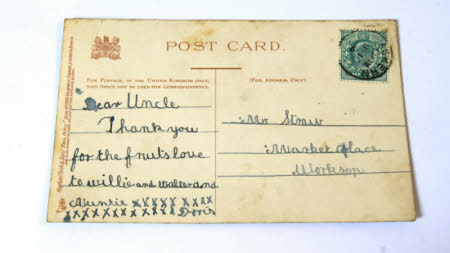 POST CARD.
FOR POSTAGE, IN THE UNITED KINGDOM ONLY,
THIS SPACE MAY BE USED FOR CORRESPONDENCE.
(FOR ADDRESS ONLY.)
Dear Uncle
Thank you
for the fruits love
to willie and walter and
Auntie xxxxx xxxx
xxxxxxxxxxx Doris
Mr Straw
Market Place
Worksop